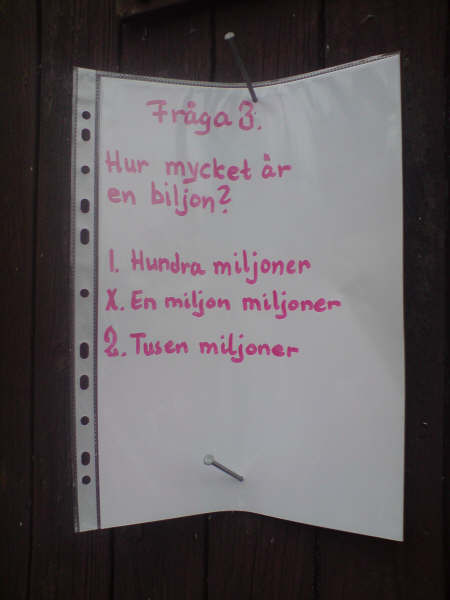 Fråga 3.
Hur mycket är
en biljon?
1. Hundra miljoner
X. En miljon miljoner
2. Tusen miljoner